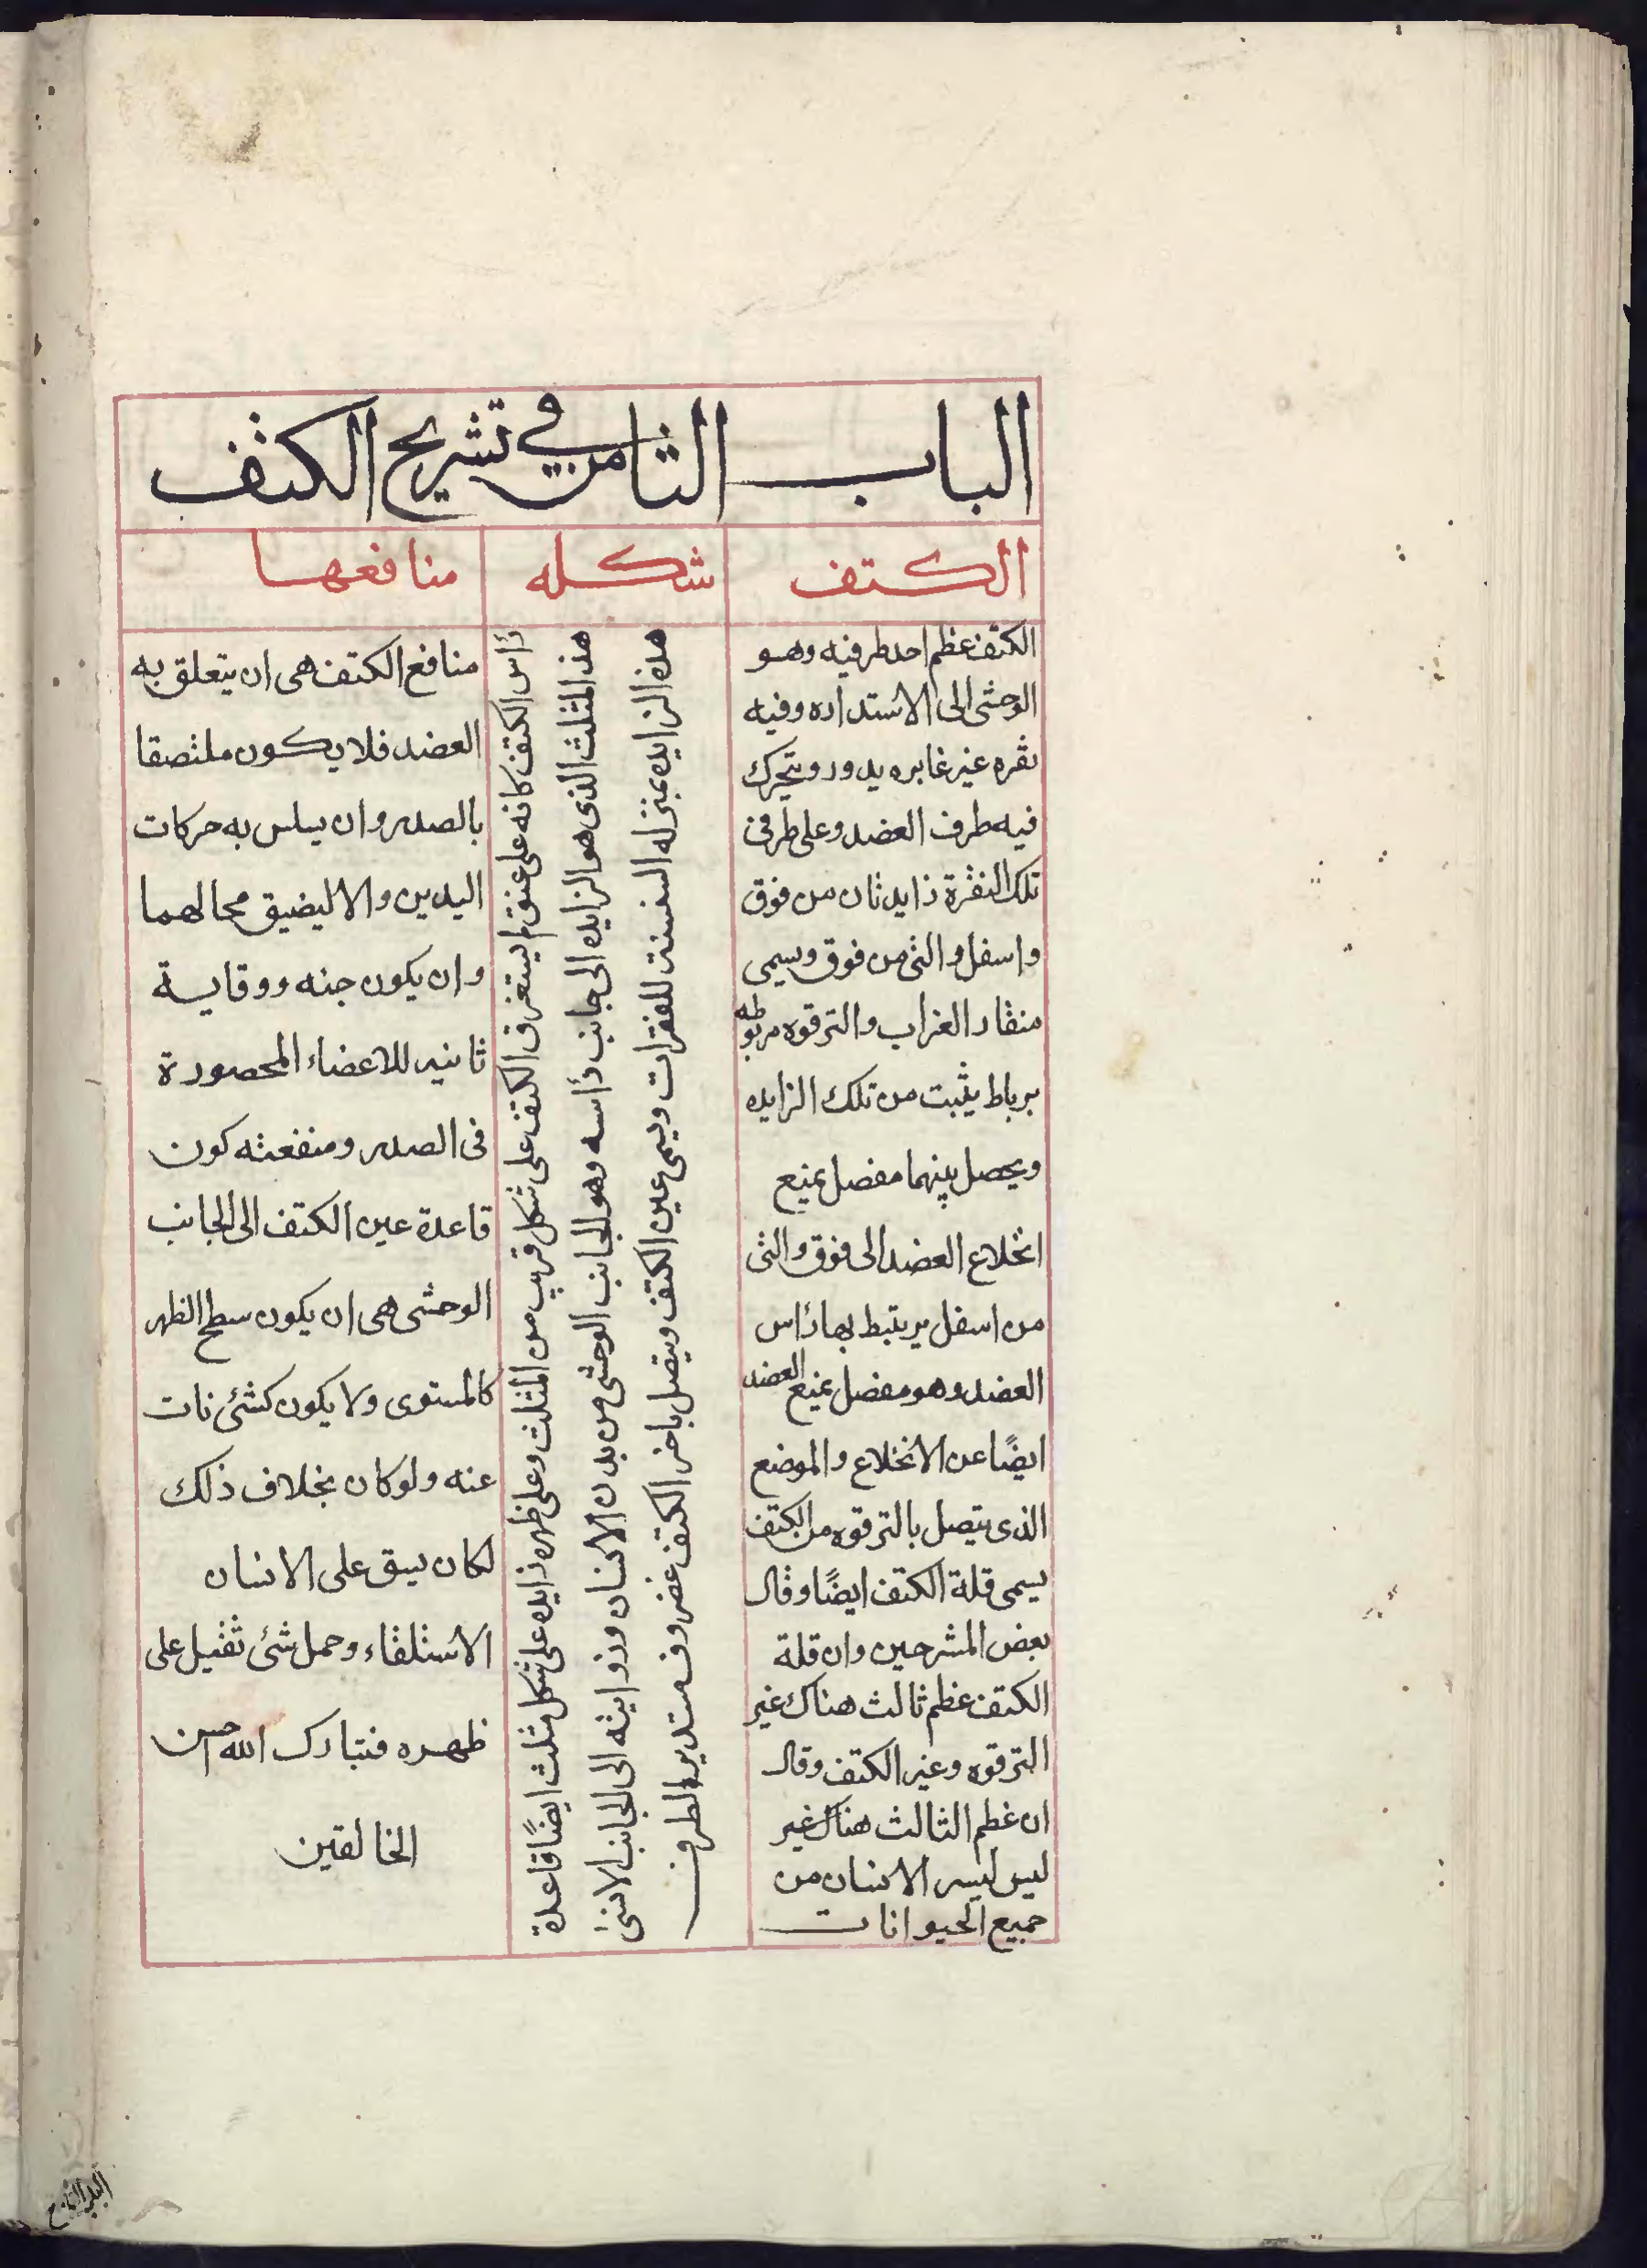 الباب الثامن في تشريح الكتف
الكتف
شكله
منافعها
الكتف عظم احد طرفيه وهو
الوحشى الى الاستداره وفيه
نقره غير غايره يدور ويتحرك
فيه طرف العضد وعلى طرفى
تلك النقرة زايدتان من فوق
واسفل والتى من فوق ويسمى
منقار الغراب والترقوه مربوطه
برباط يثبت من تلك الزايده
ويحصل بينهما مفصل يمنع
انخلاع العضد الى فوق والتى
من اسفل يرتبط بها رأس
العضد وهو مفصل يمنع العضد
ايضًا عن الانخلاع والموضع
الذى يتصل بالترقوه من الكتف
يسمى قلة الكتف ايضًا وقال
بعض المشرحين وان قلة
الكتف عظم ثالث هناك غير
الترقوه وغير الكتف وقال
ان عظم الثالث هناك غير
ليس ليسر الانسان من
جميع الحيوانات
رأس الكتف كانه على عنق ليستغرق الكتف على شكل قريب من المثلث وعلى ظهره زايده على شكل مثلث ايضًا قاعدة
هذ المثلث الذى هو الزايده الى جانب رأسه وهو الجانب الوحشى من بدن الانسان وزوايته الى الجانب الانسى
هذه الزايده بمنزله السنسنه للفقرات ويسمى عين الكتف ويتصل باخر الكتف غضروف مستدير الطرف
منافع الكتف هى ان يتعلق به
العضد فلا يكون ملتصقا
بالصدر وان يسلس به حركات
اليدين والا ليضيق مجالهما
وان يكون جنه ووقاية
ثانيه للاعضاء المحصورة
فى الصدر ومنفعته كون
قاعدة عين الكتف الى الجانب
الوحشى هى ان يكون سطح الظهر
كالمستوى ولا يكون كشئ نات
عنه ولو كان بخلاف ذلك
لكان يسق على الانسان
الاستلقاء وحمل شئ ثقيل على
ظهره فتبارك الله احسن
الخالقين